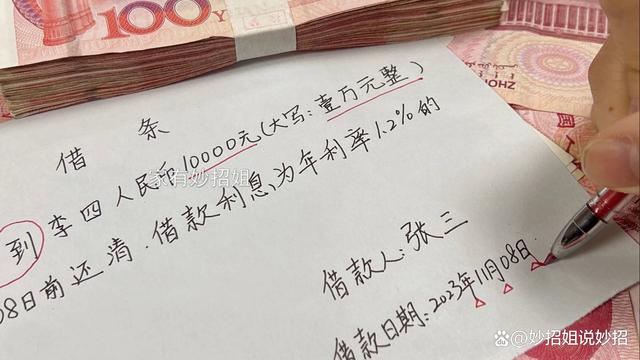 100
借 条
到李四人民币10000元(大写:壹万元整)
08日前还清.借款利息,为年利率1.2%的
家有妙招姐
借款人:张三
借款日期:2023年11月08日
ZHON
@妙招姐说妙招